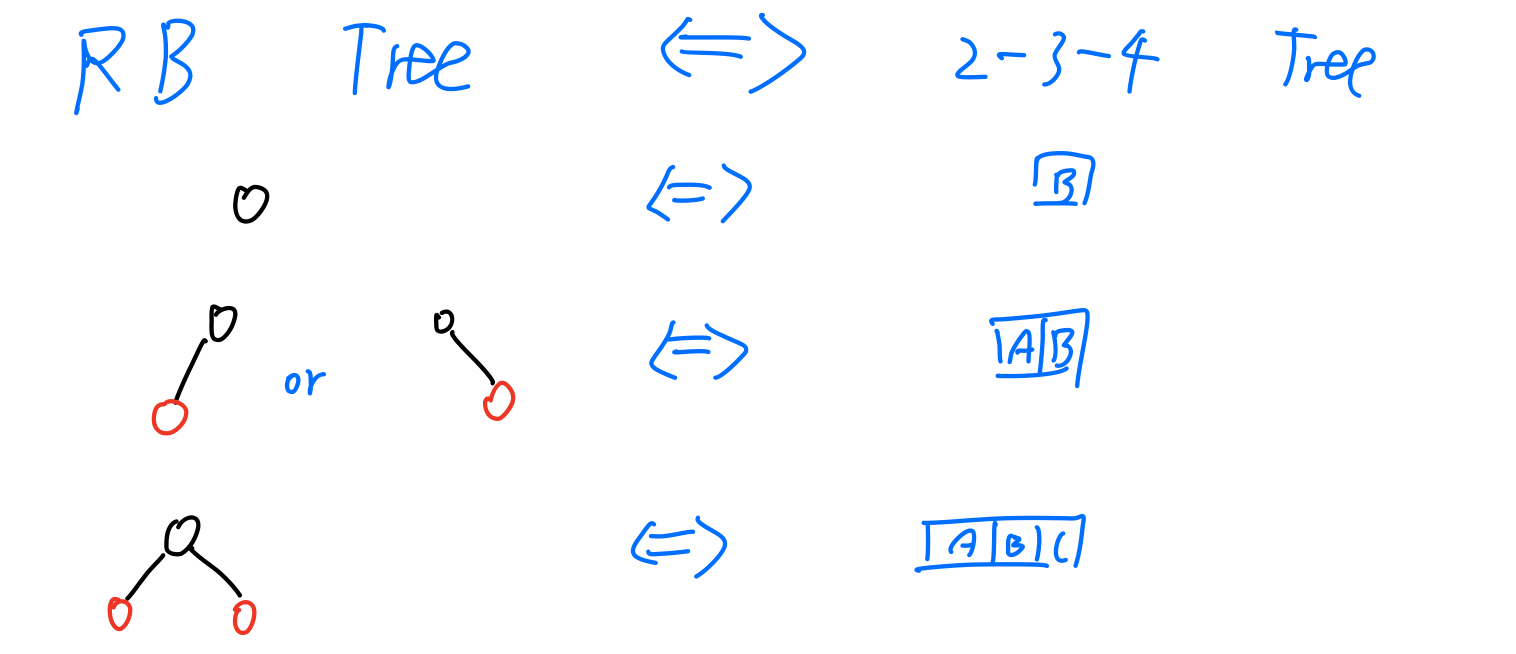 RB Tree <=> 2-3-4 Tree
<=> B
or <=> A B
<=> A B C